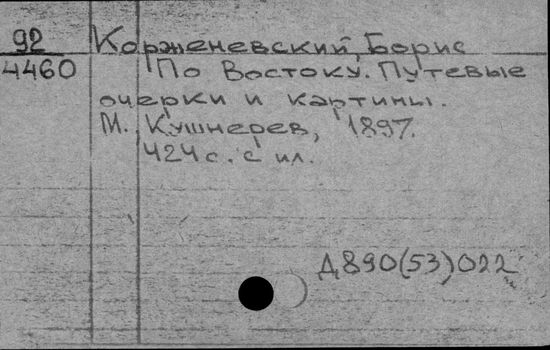 92 Корженевский, Борис
4460 По Востоку. Путевые
очерки и картины.
М., Кушнерев, 1897.
424 с. с ил.
Д890(53)022